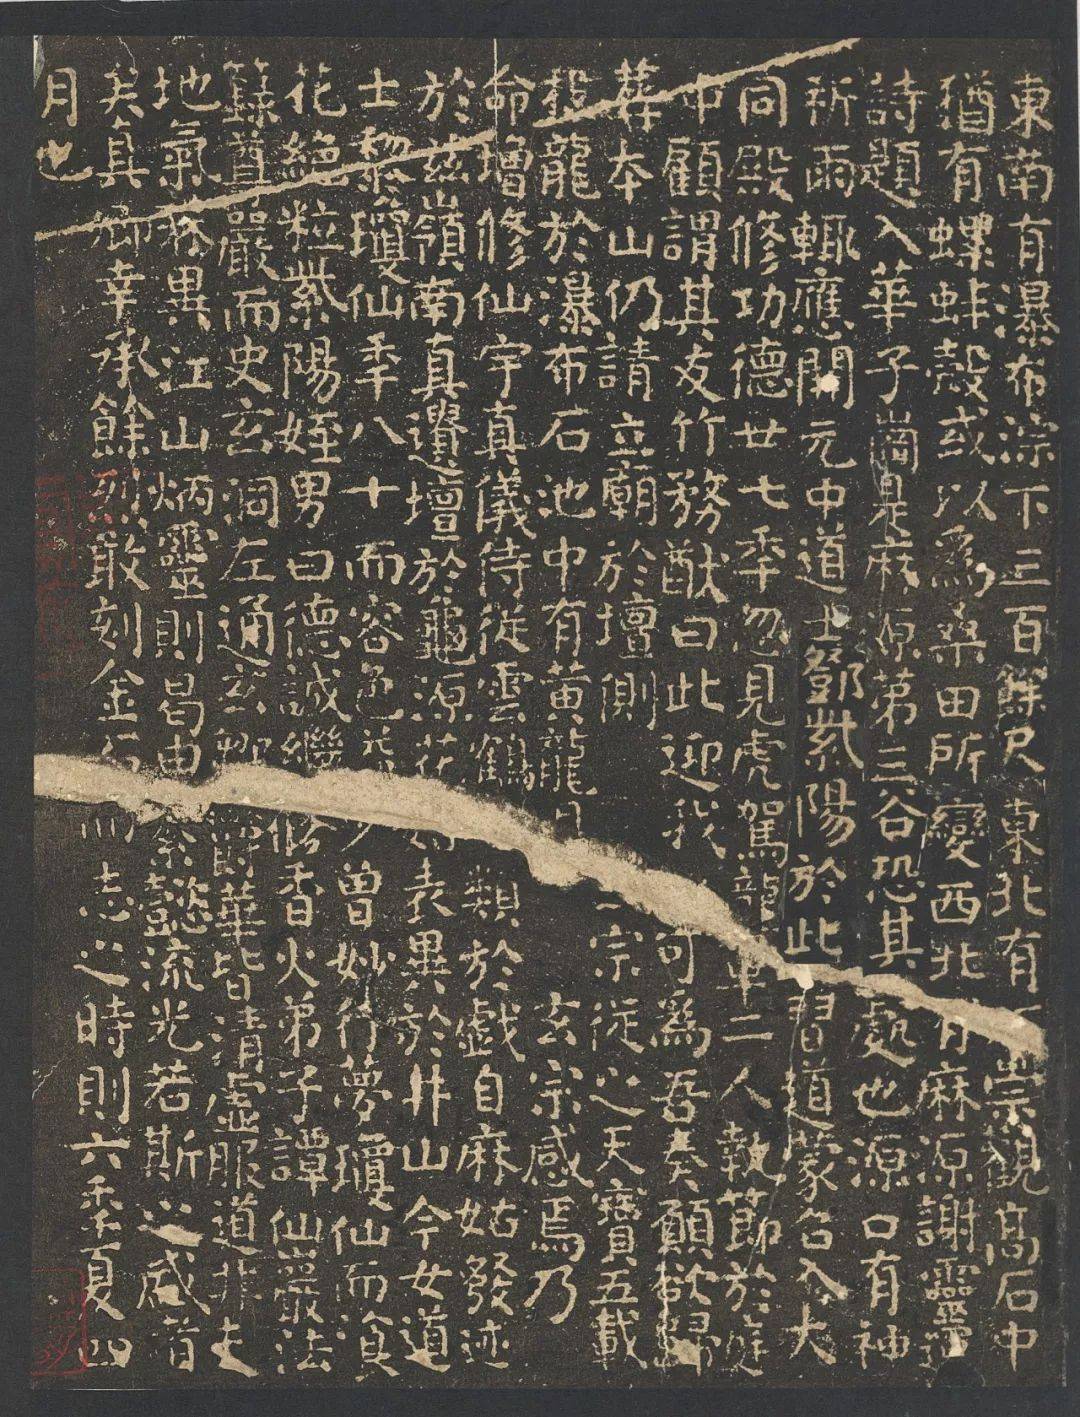 東南有瀑布淙下三百餘尺東北有崇觀高石中
猶有螺蚌殼或以為桑田所變西北有麻原謝靈運
詩題入華子崗是麻原第三谷恐其處也源口有神
祈雨輒應開元中道士鄧紫陽於此習道蒙召入大
同殿修功德廿七年忽見虎駕龍車二人執節於庭
中顧謂其友竹務猷曰此迎我可為吾奏願欲歸
葬本山仍請立廟於壇側宗從之天寶五載
投龍於瀑布石池中有黃龍見玄宗感焉乃
命增修仙宇真儀侍從雲鶴類於戲自麻姑發迹
於茲嶺南真遺壇於龜源花姑表異於井山今女道
士黎瓊仙年八十而容色益少曾妙行夢瓊仙而飡
花絕粒紫陽姪男曰德誠繼修香火弟子譚仙巖法
籙尊嚴而史玄洞左通玄鄒鬱華皆清虛服道非夫
地氣殊異江山炳靈則曷由纂懿流光若斯之盛者
矣真卿幸承餘烈敢刻金石而志之時則六年夏四
月也